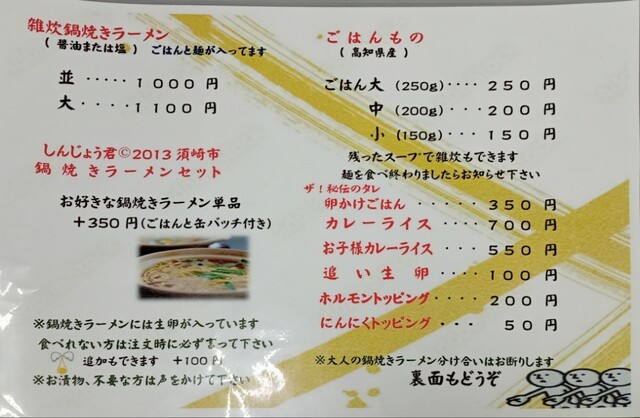 雑炊鍋焼きラーメン
( 醤油または塩 ) ごはんと麺が入ってます
並 ····· 1000 円
大 ···· 1100 円
しんじょう君©2013 須崎市
鍋焼きラーメンセット
お好きな鍋焼きラーメン単品
+350円(ごはんと缶バッチ付き)
※鍋焼きラーメンには生卵が入っています
食べれない方は注文時に必ず言って下さい
追加もできます +100円
※お漬物、不要な方は声をかけて下さい
ごはんもの
( 高知県産 )
ごはん大 (250g) ···· 250 円
中 (200g) ···· 200 円
小 (150g) ···· 150 円
残ったスープで雑炊もできます
麺を食べ終わりましたらお知らせ下さい
ザ!秘伝のタレ
卵かけごはん ····· 350 円
カレーライス ···· 700 円
お子様カレーライス ··· 550 円
追い生卵 ···· 100 円
ホルモントッピング ··· 200 円
にんにくトッピング ··· 50 円
※大人の鍋焼きラーメン分け合いはお断りします
裏面もどうぞ